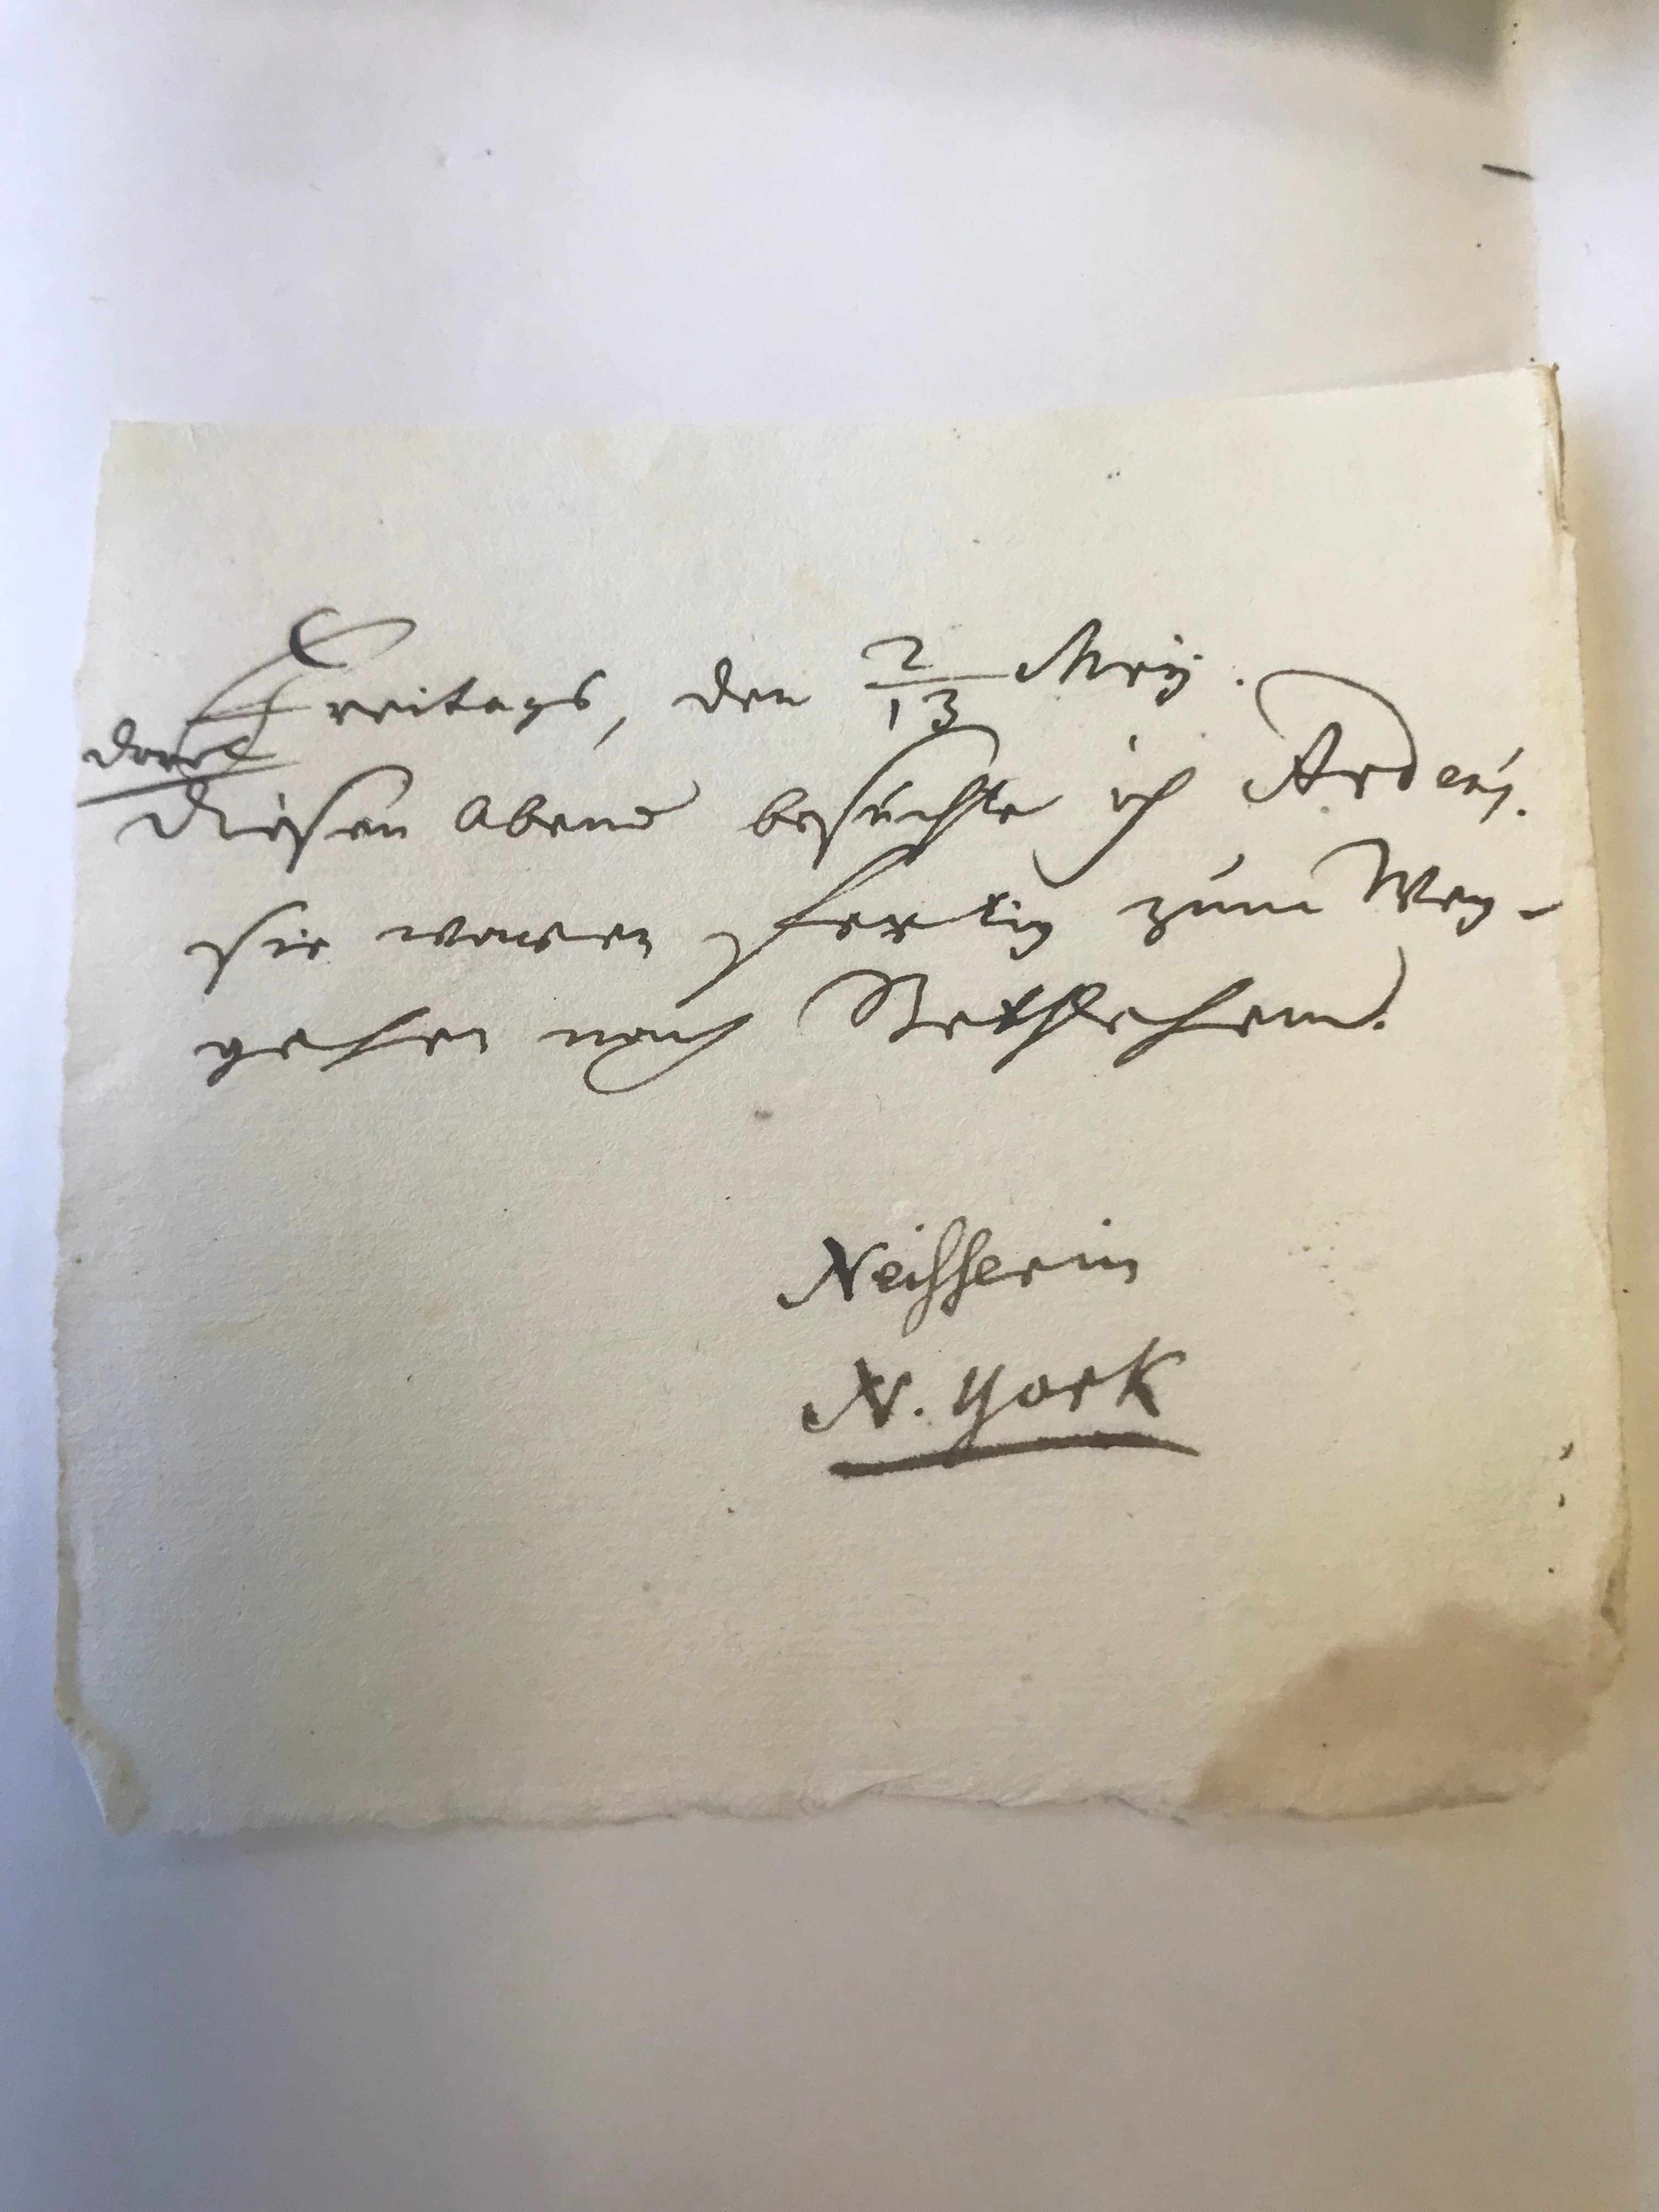 Freitags, den 2/13 Mey.
dort
Diesen Abend besuchte ich
sie waren fertig zum Weg-
gehen nach Bethlehem.
Neisserin
N. York